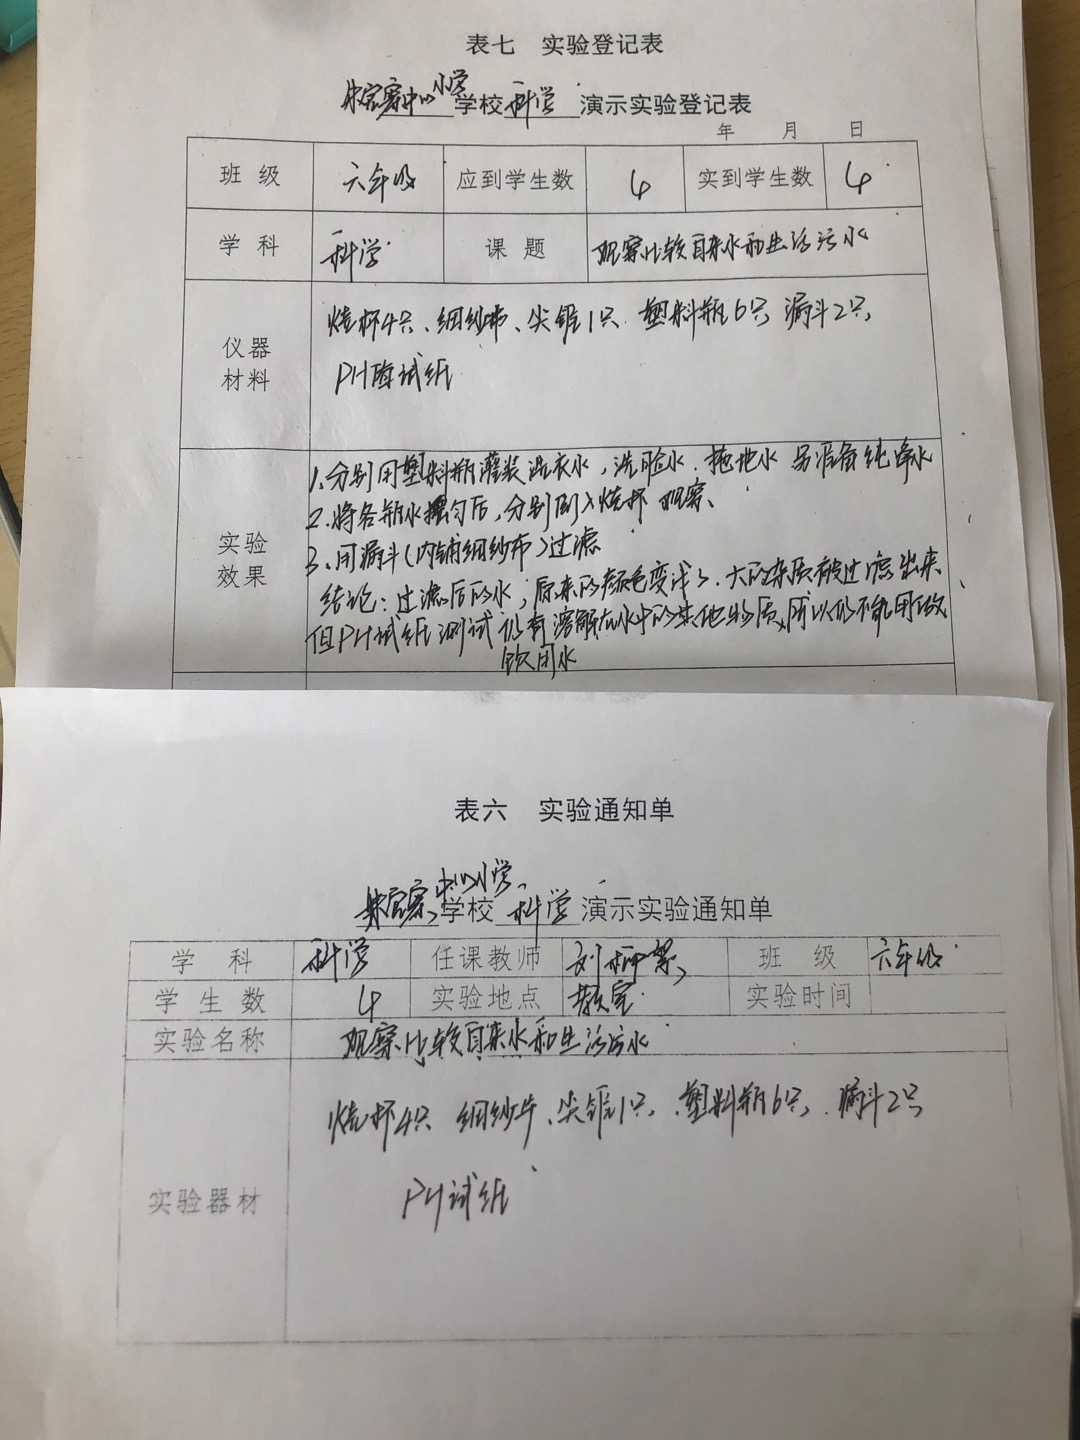 表七 实验登记表
中心小学
学校 科学 演示实验登记表
年 月 日
班 级 六年级 应到学生数 4 实到学生数 4
学 科 科学 课 题 观察比较自来水和生活污水
仪器 材料
烧杯4只、细纱布、尖锥1只、塑料瓶6只,漏斗2只,
PH 试纸
实验 效果
1.分别用塑料瓶灌装洗衣水,洗脸水.拖地水 另准备纯净水
2.将各瓶水摇匀后,分别倒入烧杯 观察、
3.用漏斗(内铺细纱布)过滤
结论:过滤后的水,原来的颜色变浅了.大的杂质被过滤出来
但PH试纸测试仍有溶解在水中的其他物质,所以仍不能用做
饮用水
表六 实验通知单
中心小学
学校 科学 演示实验通知单
学 科 科学 任课教师 刘 班 级 六年级
学 生 数 4 实验地点 教室 实验时间
实验名称 观察比较自来水和生活污水
烧杯4只 细纱布、尖锥1只,塑料瓶6只,漏斗2只
PH试纸
实验器材